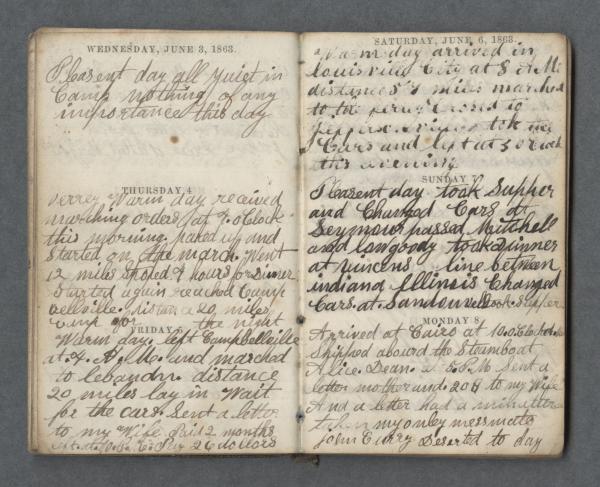 WEDNESDAY, JUNE 3, 1863.
Pleasent day all quiet in
Camp nothing of any
importance this day
THURSDAY, 4
verrey Warm day received
marching orders at 9. oClock
this morning. paked up and
started on the march. Went
12 miles stoped 2 hours for Dinner
Started again reached Camp
bellville. distance 20 miles
camp for the night
FRIDAY 5
Warm day left Campbellville
at 4. A.M. and marched
to lebandn. distance
20 miles lay in Wait
for the cars. Sent a letter
to my Wife Paid 2 months
26 dollars
SATURDAY, JUNE 6, 1863.
Warm day arrived in
louisville City at 8 A.M.
distance miles marched
to the ferry Crosed to
took the
Cars and left at 5 oClock
this evening
SUNDAY 7
Pleasent day took Supper
and Changed Cars at
Seymour passed Mitchell
and longoody took Dinner
at vincens line between
indiand Illinois Changed
Cars at Sandouvel took Supper
MONDAY 8
Arrived at Cairo at 10. oClock
Shipped aboard the Steamboat
Alice Dean. at 5. P.M. Sent a
letter mother and 20$ to my Wife
And a letter had a
taken my onley messmate
John Curry Deserted to day